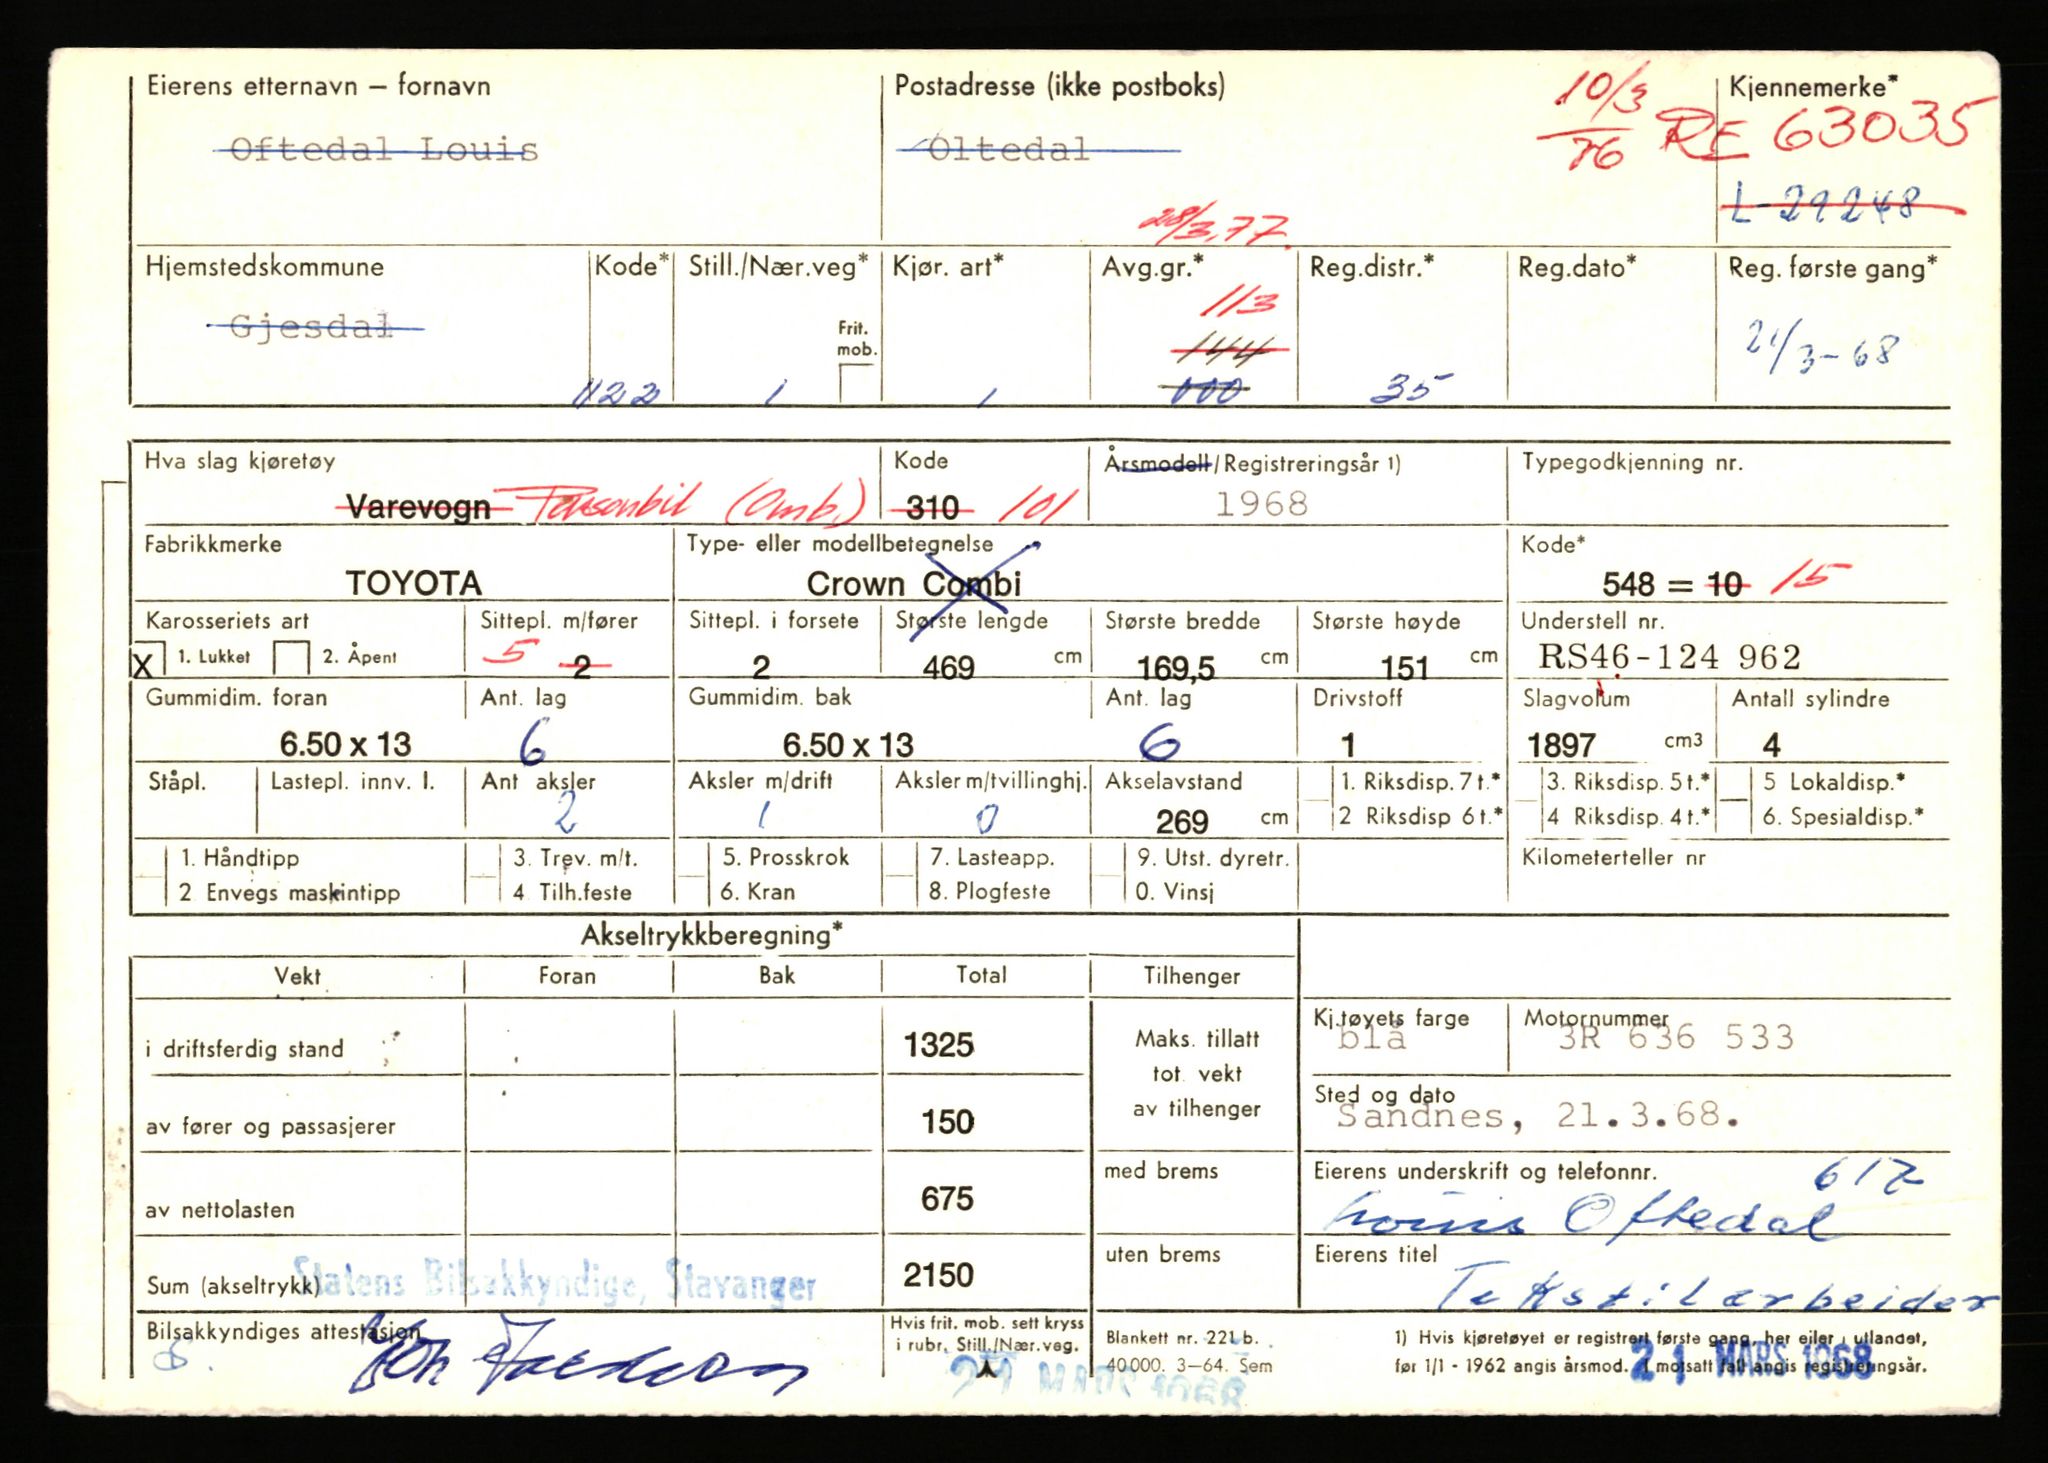 Eierens etternavn – fornavn
Oftedal Louis
Postadresse (ikke postboks)
Oltedal
10/3
76
Kjennemerke*
RE 63035
L-29248
28/3.77.
Hjemstedskommune
Gjesdal
Kode*
1122
Still./Nær.veg*
Frit.
mob.
1
Kjør. art*
1
Avg.gr.*
113
144
000
Reg.distr.*
35
Reg.dato*
Reg. første gang*
21/3-68
Hva slag kjøretøy
Varevogn Personbil (Omb.)
Kode
310 101
Årsmodell/Registreringsår 1)
1968
Typegodkjenning nr.
Fabrikkmerke
TOYOTA
Type- eller modellbetegnelse
Crown Combi
Kode*
548 = 10 15
Karosseriets art
X 1. Lukket 2. Åpent
Sittepl. m/fører
5 2
Sittepl. i forsete
2
Største lengde
469 cm
Største bredde
169,5 cm
Største høyde
151 cm
Understell nr.
RS46-124 962
Gummidim. foran
6.50 x 13
Ant. lag
6
Gummidim. bak
6.50 x 13
Ant. lag
6
Drivstoff
1
Slagvolum
1897 cm3
Antall sylindre
4
Ståpl.
Lastepl. innv. l.
Ant aksler
2
Aksler m/drift
1
Aksler m/tvillinghj.
0
Akselavstand
269 cm
1. Riksdisp. 7 t.*
2 Riksdisp 6 t.*
3. Riksdisp. 5 t.*
4 Riksdisp. 4 t.*
5 Lokaldisp.*
6. Spesialdisp.*
1. Håndtipp
2 Envegs maskintipp
3. Trev. m/t.
4 Tilh.feste
5. Prosskrok
6. Kran
7. Lasteapp.
8. Plogfeste
9. Utst. dyretr.
0. Vinsj
Kilometerteller nr
Akseltrykkberegning*
Vekt Foran Bak Total Tilhenger
i driftsferdig stand 1325
av fører og passasjerer 150
av nettolasten 675
Sum (akseltrykk) 2150
Maks. tillatt
tot. vekt
av tilhenger
med brems
uten brems
Kj.tøyets farge
blå
Motornummer
3R 636 533
Sted og dato
Sandnes, 21.3.68.
Eierens underskrift og telefonnr.
617
Louis Oftedal
Eierens titel
Tekstilarbeider
Statens Bilsakkyndige, Stavanger
Bilsakkyndiges attestasjon
Hvis frit. mob. sett kryss
i rubr. Still./Nær.veg.
21 MARS 1968
Blankett nr. 221 b.
40000. 3–64. Sem
1) Hvis kjøretøyet er registrert første gang, her eller i utlandet,
før 1/1 - 1962 angis årsmod. I motsatt fall angis registreringsår.
21 MARS 1968